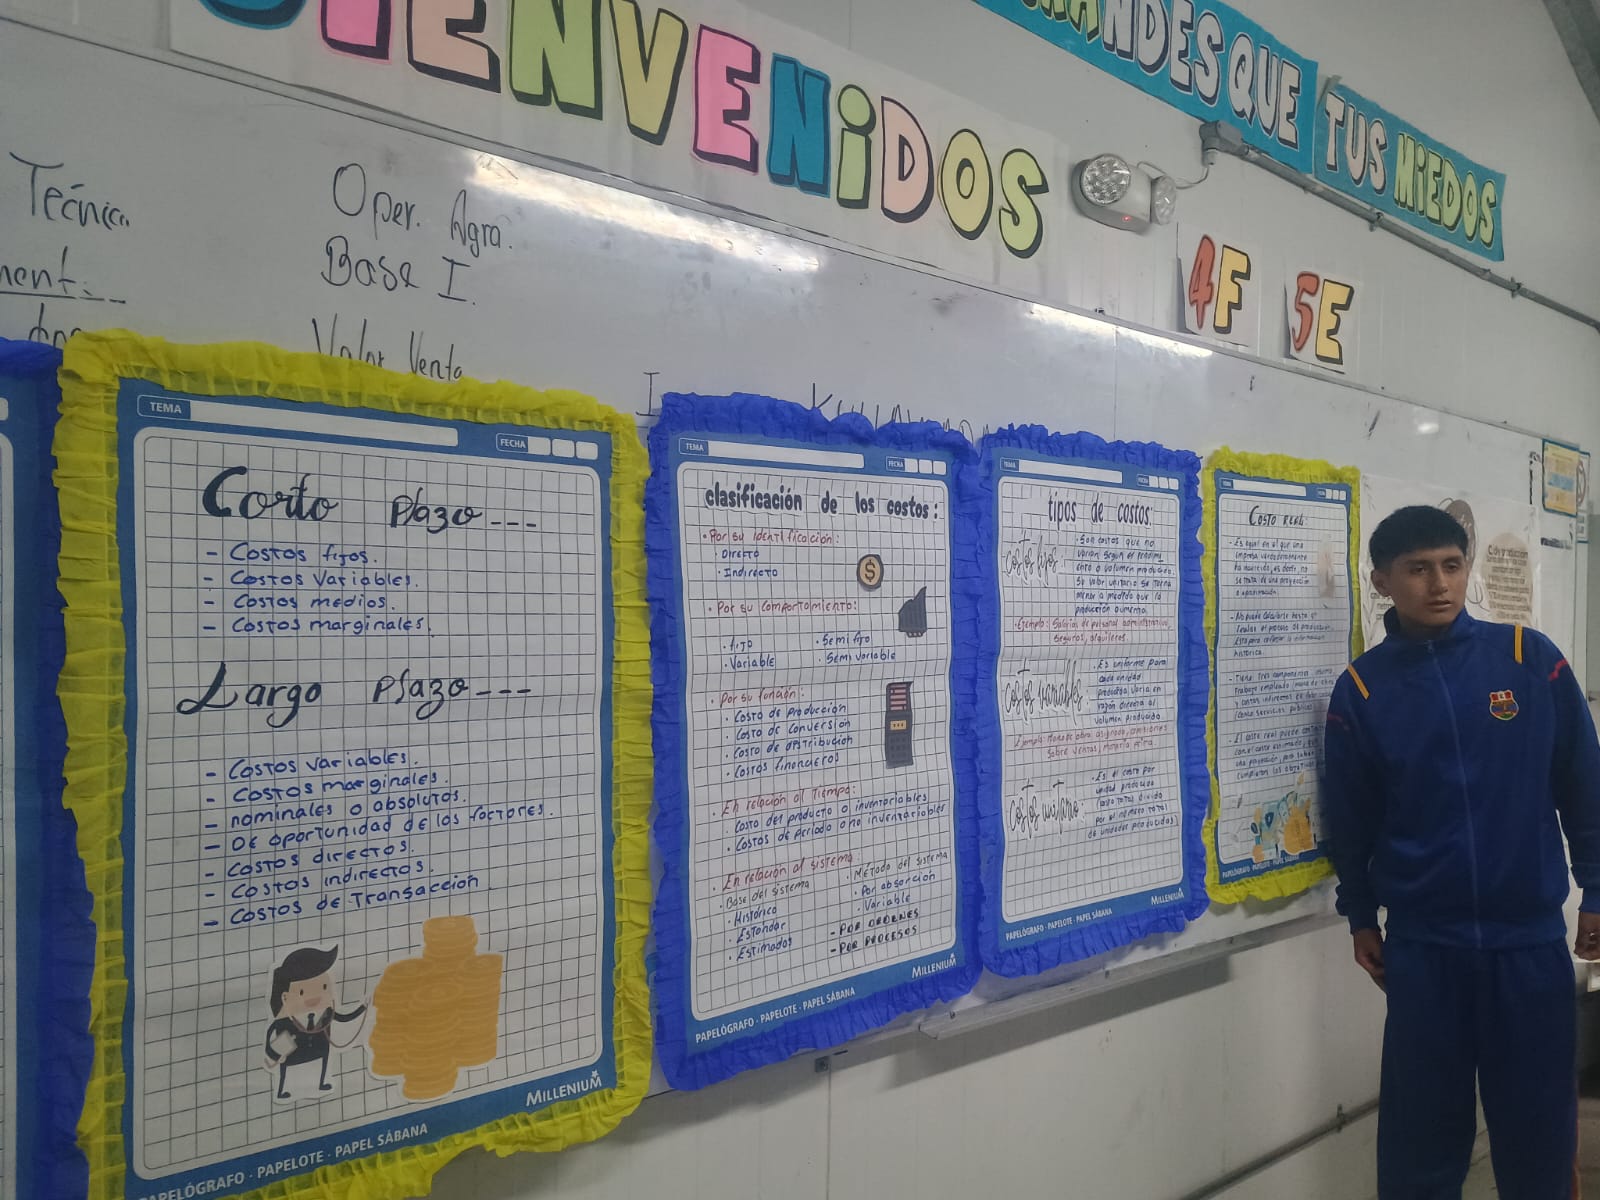 BIENVENIDOS
ANDES QUE TUS MiEDOS
4F 5E
Técnica
Oper. Agra.
Base I.
Valor Venta
I
TEMA
FECHA
Corto plazo---
- Costos fijos.
- Costos variables.
- Costos medios.
- Costos marginales.
Largo plazo---
- Costos variables.
- Costos marginales.
- nominales o absolutos.
- De oportunidad de los factores.
- Costos directos.
- Costos indirectos.
- Costos de Transacción
MILLENIUM
PAPELÓGRAFO · PAPELOTE · PAPEL SÁBANA
TEMA
FECHA
clasificación de los costos:
· Por su identificación:
· Directo
· Indirecto
· Por su comportamiento:
· fijo · Semi fijo
· Variable · Semi variable
· Por su función:
· Costo de Producción
· Costo de conversión
· Costo de distribución
· Costos financieros
· En relación al Tiempo:
· Costo del producto o inventariables
· Costos de periodo o no inventariables
· En relación al sistema:
· Base del sistema · Método del sistema
· Histórico · Por absorción
· Estandar · Variable
· Estimados - POR ORDENES
- POR PROCESOS
MILLENIUM
PAPELÓGRAFO · PAPELOTE · PAPEL SÁBANA
TEMA
FECHA
tipos de costos:
costos fijos:
· Son costos que no
varian segun el rendimi
ento o volumen producido.
Su valor unitario se torna
menor a medida que la
producción aumenta.
· Ejemplo: Salarios de personal administrativo,
Seguros, alquileres.
costos variables:
· Es uniforme para
cada unidad
producida varia en
razón directa al
volumen producido
sobre ventas, materia prima.
costos unitario:
· Es el costo por
unidad producida
costo total dividido
por el número total
de unidades producidas
MILLENIUM
PAPELÓGRAFO · PAPELOTE · PAPEL SÁBANA
TEMA
COSTO REAL:
- Es aquel en el que una
empresa verdaderamente
ha incurrido, es decir, no
se trata de una proyección
o aproximación.
histórica.
- Tiene tres componentes
PAPELÓGRAFO · PAPELOTE · PAPEL SÁBANA